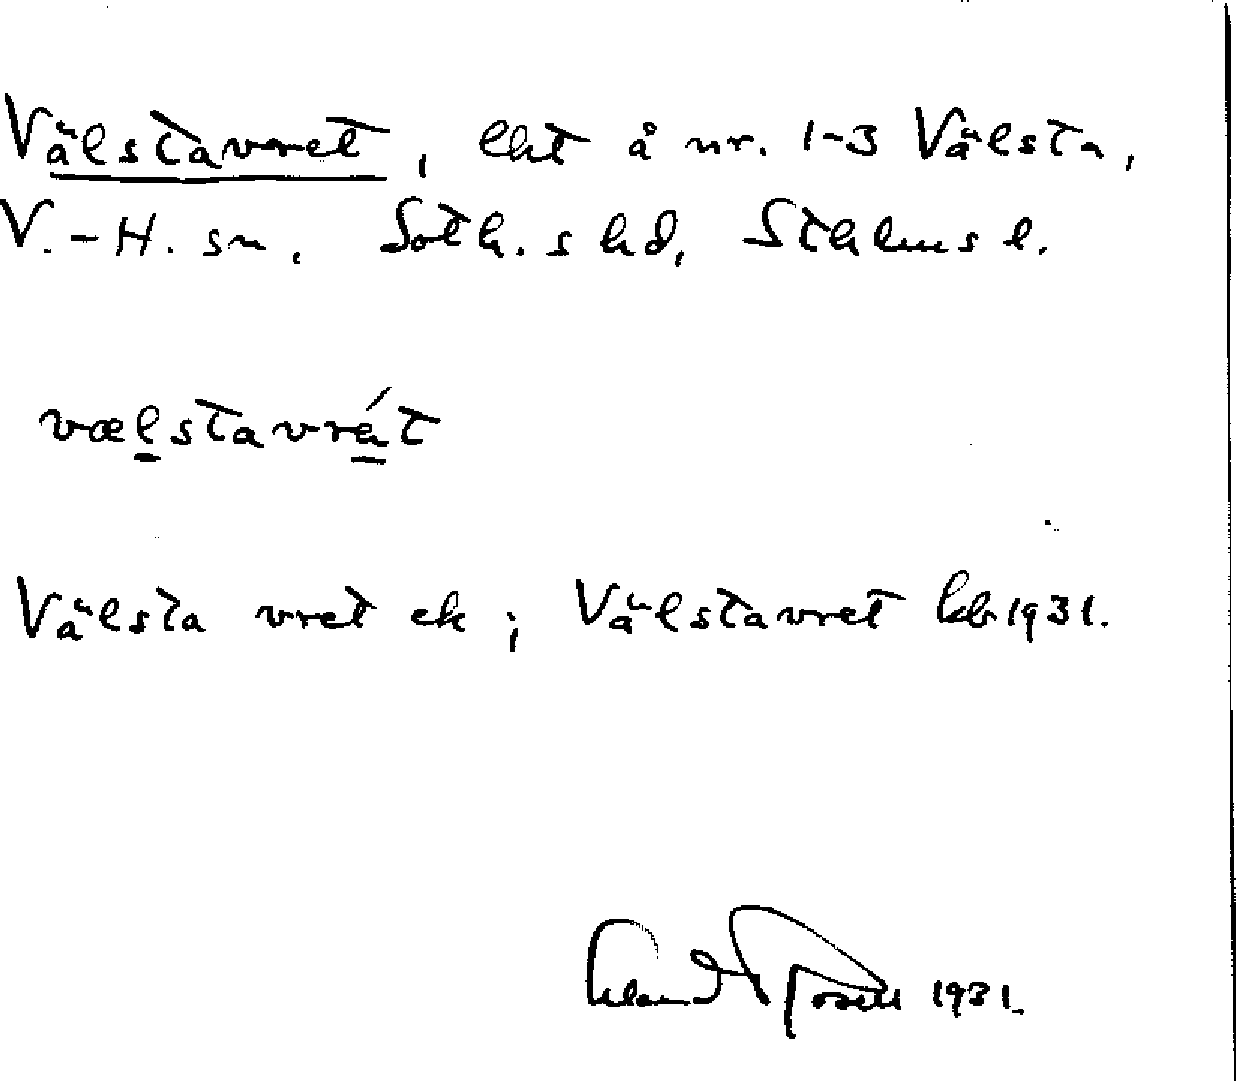 Välstavret, lht å nr. 1-3 Välsta,
V.-H. sn, Soth.s hd, Sthlms l.
vælstavrét
Välsta vret ek; Välstavret lcb 1931.
1931.